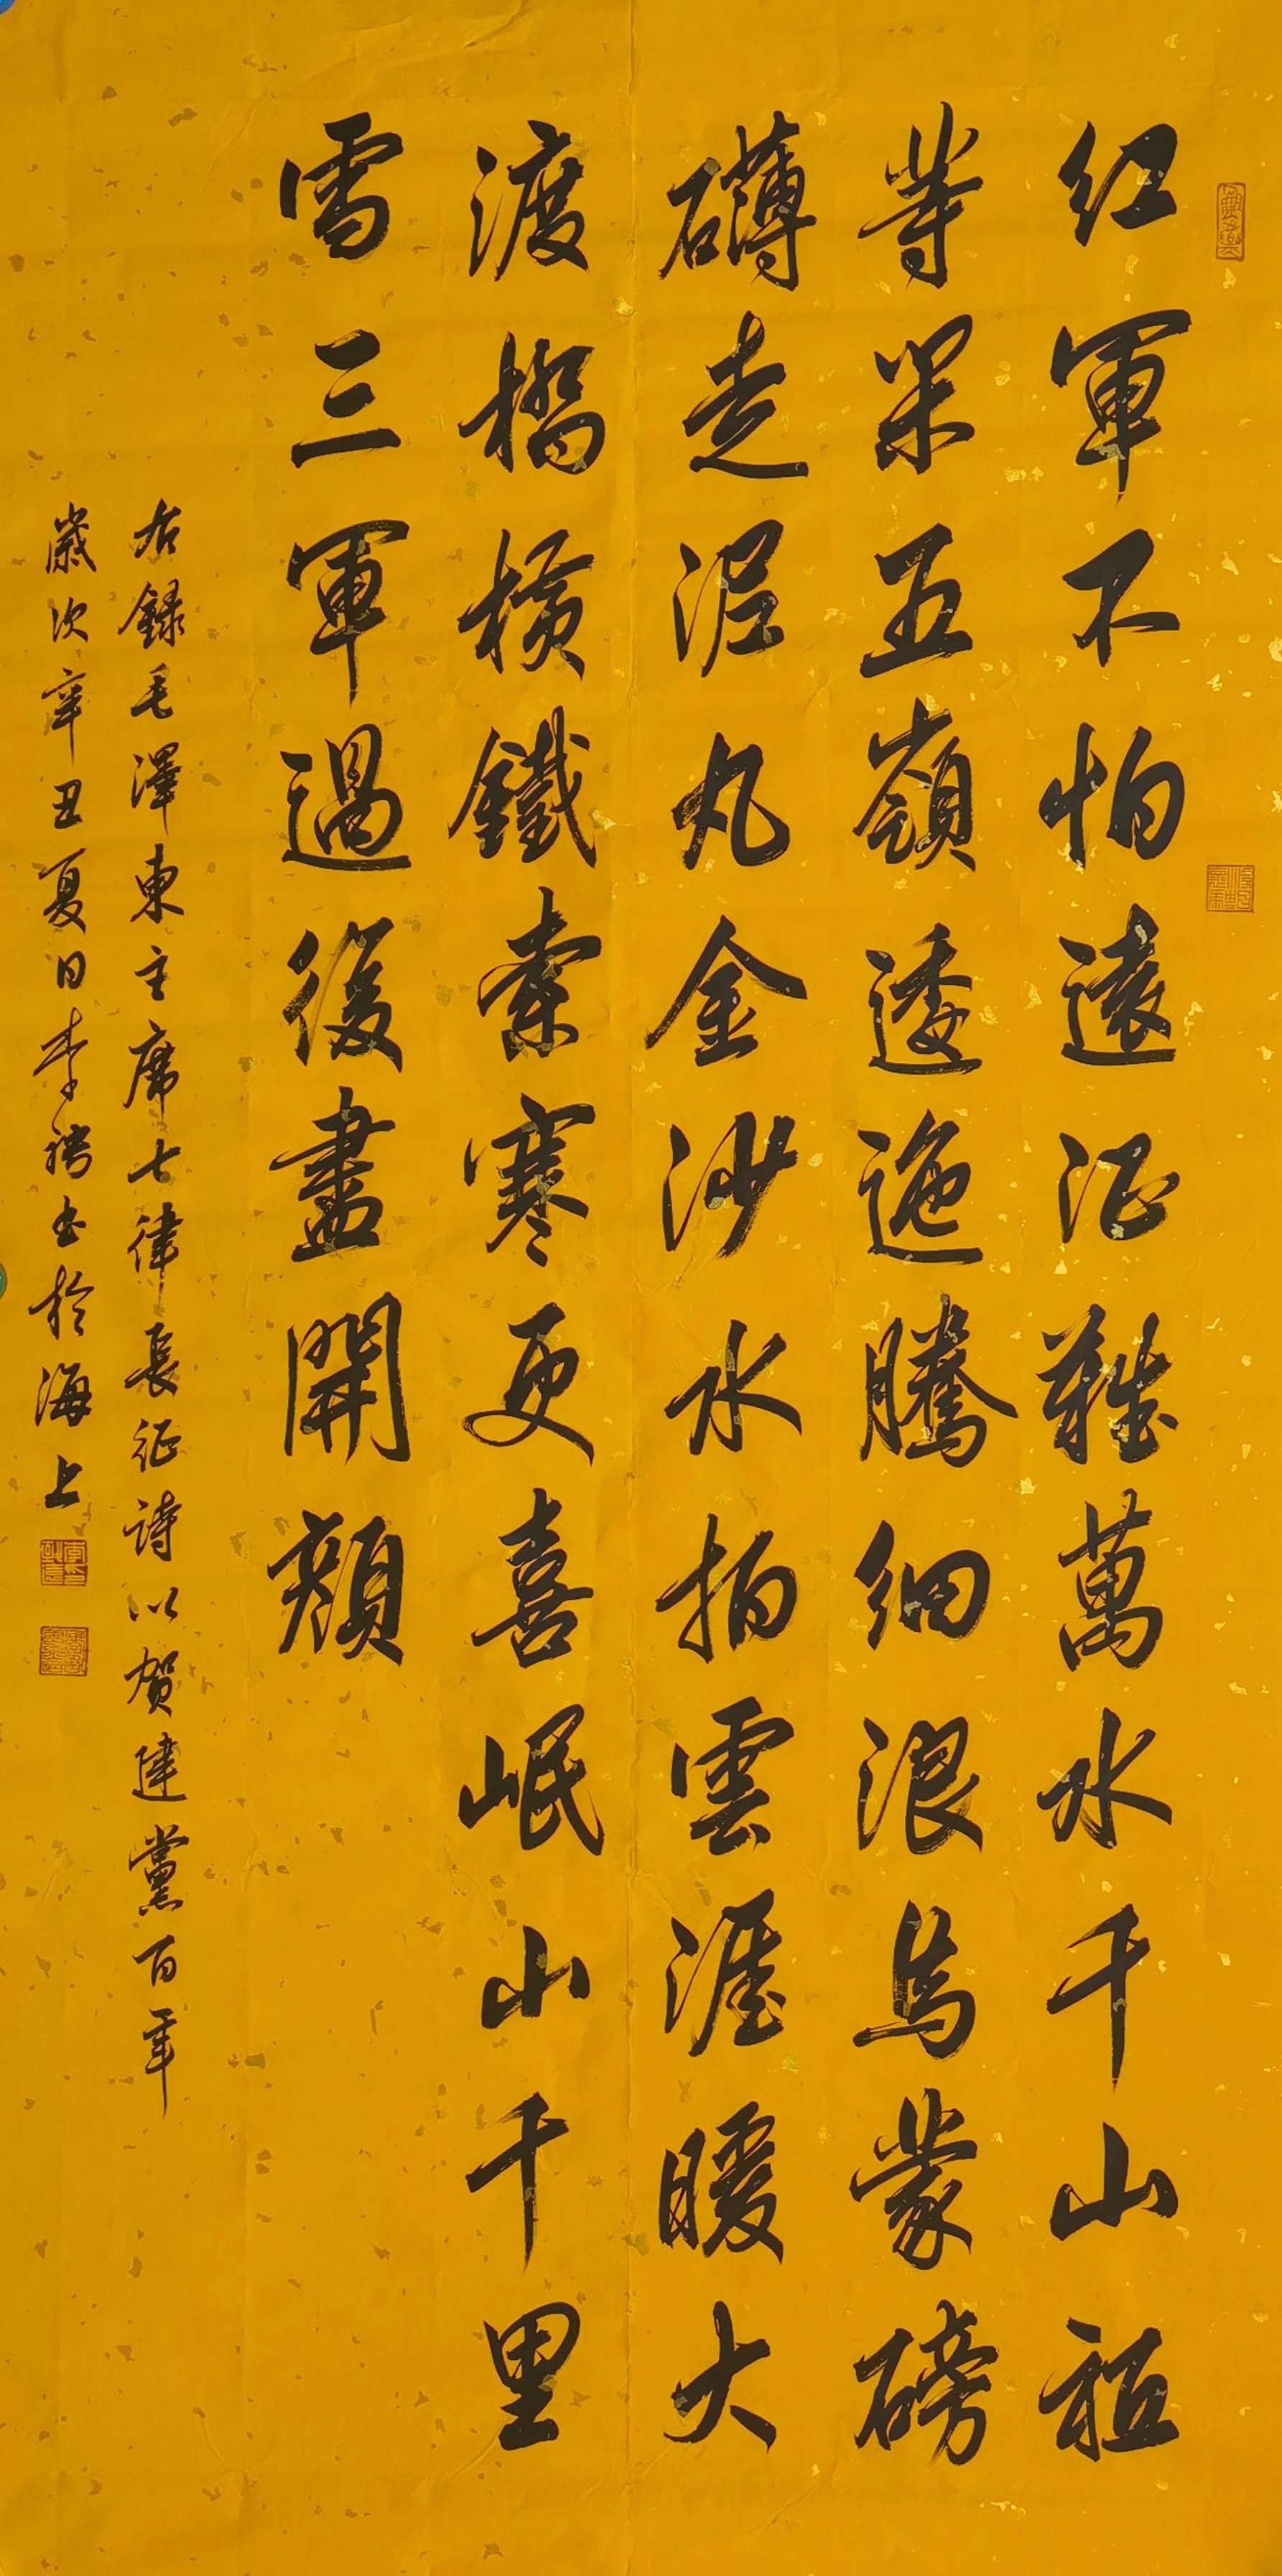 紅軍不怕遠征難萬水千山祇
等閑五嶺逶迤騰細浪烏蒙磅
礴走泥丸金沙水拍雲涯暖大
渡橋橫鐵索寒更喜岷山千里
雪三軍過後盡開顏
右錄毛澤東主席七律長征詩以賀建黨百年
歲次辛丑夏日李騁書於海上